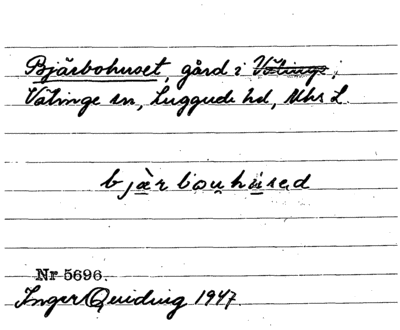 Bjärbohuset, gård i Välinge,
Välinge sn, Luggude hd, Mhs L.
bjàrbouhùsed
Nr 5696.
Inger Quiding 1947